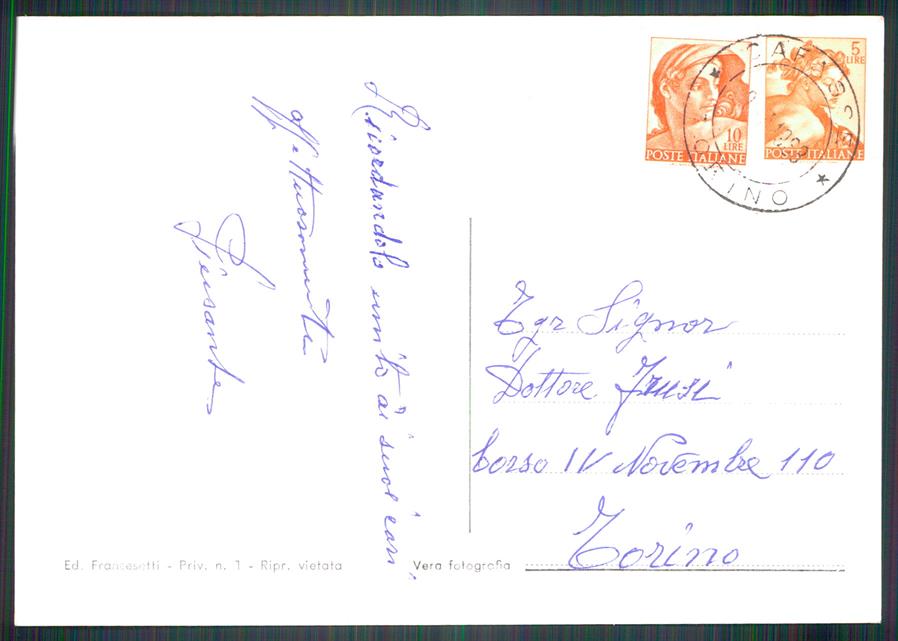 Ricordandolo unito ai suoi cari
affettuosamente
10
LIRE
POSTE ITALIANE
5
LIRE
POSTE ITALIANE
TORINO
Egr Signor
Dottore
Corso IV Novembre 110
Torino
Ed. Francesetti - Priv. n. 1 - Ripr. vietata
Vera fotografia